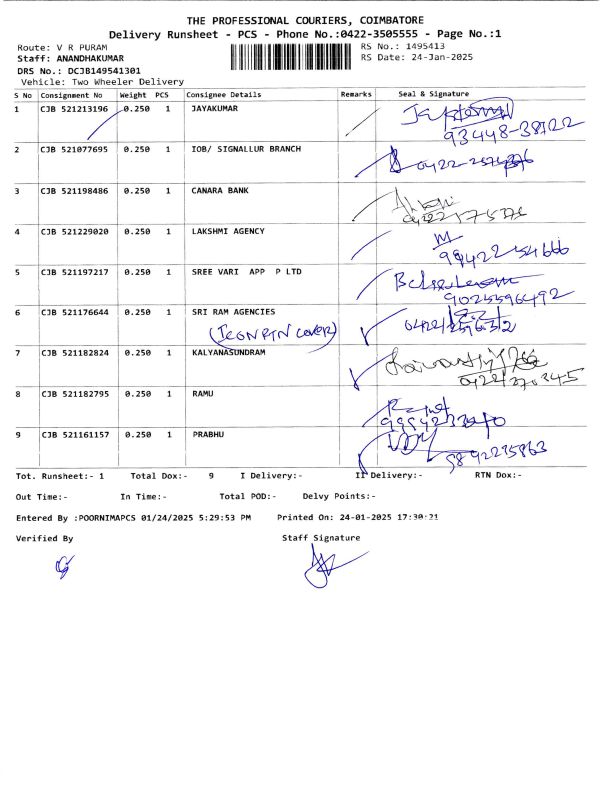 THE PROFESSIONAL COURIERS, COIMBATORE
Delivery Runsheet - PCS - Phone No.:0422-3505555 - Page No.:1
Route: V R PURAM RS No.: 1495413
Staff: ANANDHAKUMAR RS Date: 24-Jan-2025
DRS No.: DCJB149541301
Vehicle: Two Wheeler Delivery
S No Consignment No Weight PCS Consignee Details Remarks Seal & Signature
1 CJB 521213196 0.250 1 JAYAKUMAR
93448-38122
2 CJB 521077695 0.250 1 IOB/ SIGNALLUR BRANCH
3 CJB 521198486 0.250 1 CANARA BANK
4 CJB 521229020 0.250 1 LAKSHMI AGENCY
5 CJB 521197217 0.250 1 SREE VARI APP P LTD
9025596492
6 CJB 521176644 0.250 1 SRI RAM AGENCIES
7 CJB 521182824 0.250 1 KALYANASUNDRAM
8 CJB 521182795 0.250 1 RAMU
9 CJB 521161157 0.250 1 PRABHU
Tot. Runsheet:- 1 Total Dox:- 9 I Delivery:- II Delivery:- RTN Dox:-
Out Time:- In Time:- Total POD:- Delvy Points:-
Entered By :POORNIMAPCS 01/24/2025 5:29:53 PM Printed On: 24-01-2025 17:30:21
Verified By Staff Signature